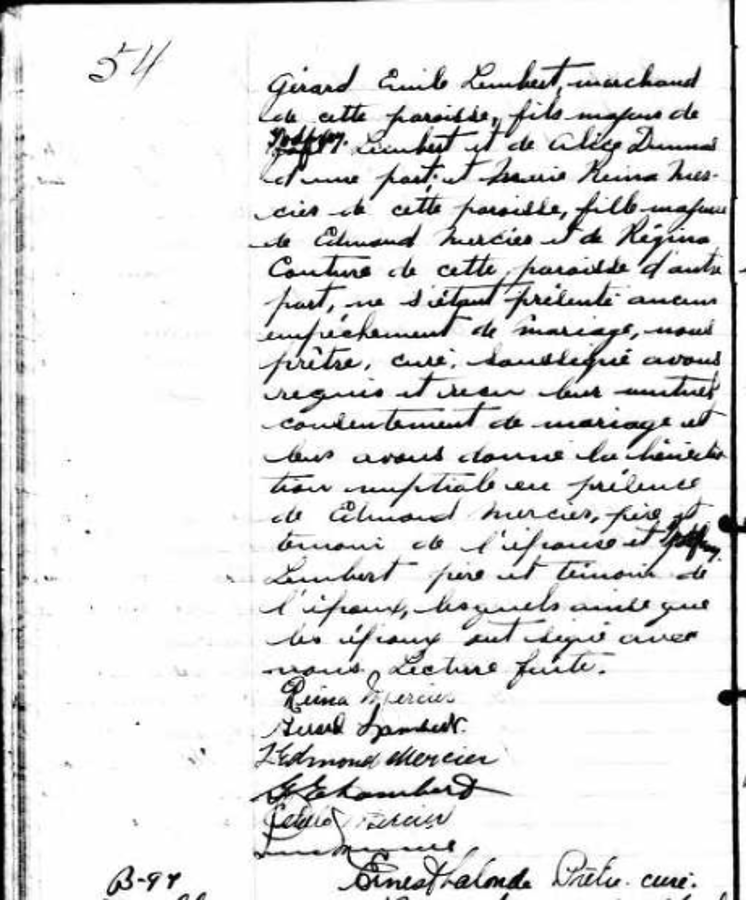 54
Gérard Emile Lambert, marchand
de cette paroisse, fils majeur de
Lambert et de Alice Dumas
d'une part; et Marie Reina Mer-
cier de cette paroisse, fille majeure
de Edmond Mercier et de Régina
Couture de cette paroisse d'autre
part, ne s'étant présenté aucun
empêchement de mariage, nous
prêtre, curé, soussigné avons
requis et reçu leur mutuel
consentement de mariage et
leur avons donné la bénédic
tion nuptiale en présence
de Edmond Mercier, père et
témoin de l'épouse et
Lambert père et témoin de
l'époux, lesquels ainsi que
les époux ont signé avec
nous. Lecture faite.
Reina Mercier
Gérard Lambert.
Edmond Mercier
Lambert
Mercier
Ernest Lalonde Prêtre. curé.
B-97